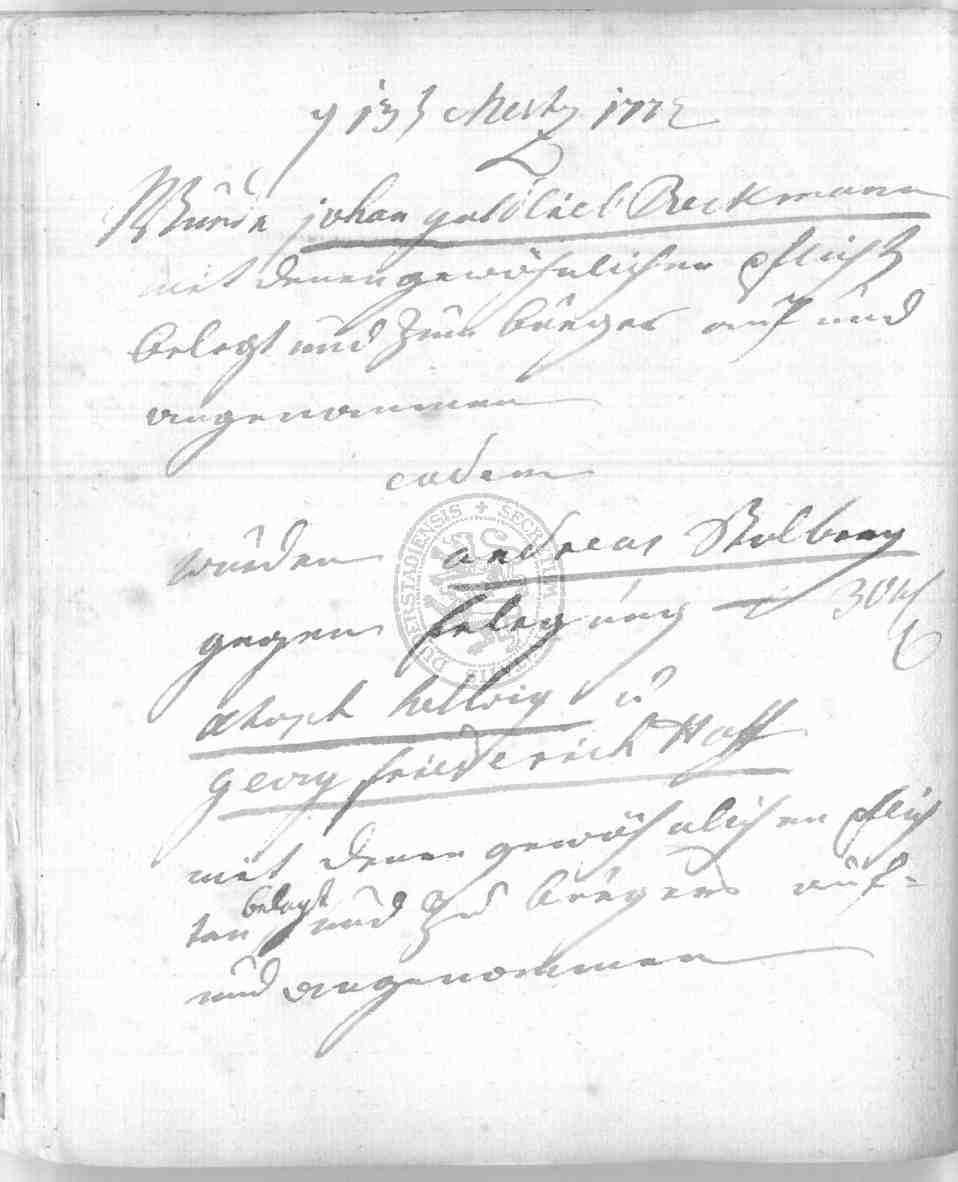 13 Mertz 1772
Wurde johan gottlieb Beckmann
mit denen gewöhnlichen pflicht
belegt und zum bürger auf und
angenommen
eodem
wurden andreas Stolberg
gegen Erlegung 30
Chorph hellwig u
georg friederich Hoff
mit denen gewöhnlichen pflich
ten belegt und zu bürgers auf-
und angenommen
SECRETUM DUDERSTADIENSIS